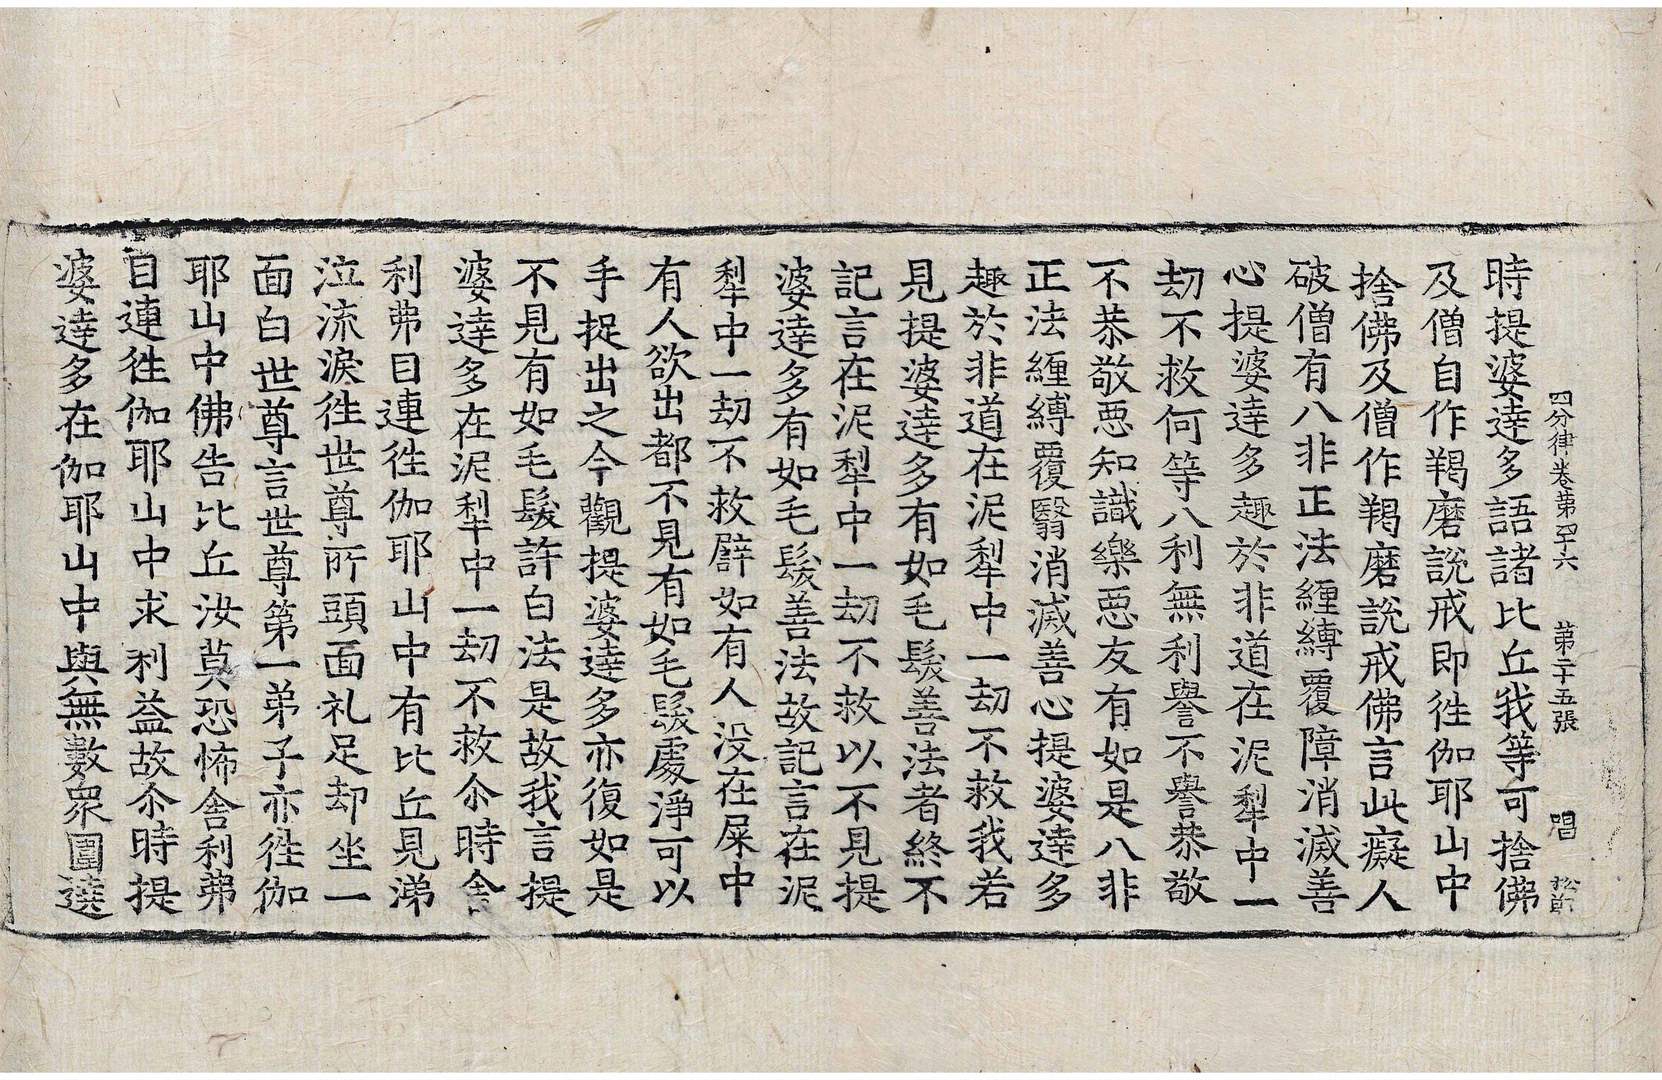 四分律卷第四十六 第二十五張 唱
時提婆達多語諸比丘我等可捨佛
及僧自作羯磨說戒即徃伽耶山中
捨佛及僧作羯磨說戒佛言此癡人
破僧有八非正法纏縛覆障消滅善
心提婆達多趣於非道在泥犁中一
劫不救何等八利無利譽不譽恭敬
不恭敬惡知識樂惡友有如是八非
正法纏縛覆翳消滅善心提婆達多
趣於非道在泥犁中一劫不救我若
見提婆達多有如毛髮善法者終不
記言在泥犁中一劫不救以不見提
婆達多有如毛髮善法故記言在泥
犁中一劫不救譬如有人沒在屎中
有人欲出都不見有如毛髮處淨可以
手捉出之今觀提婆達多亦復如是
不見有如毛髮許白法是故我言提
婆達多在泥犁中一劫不救尒時舍
利弗目連徃伽耶山中有比丘見涕
泣流淚徃世尊所頭面礼足却坐一
面白世尊言世尊第一弟子亦徃伽
耶山中佛告比丘汝莫恐怖舍利弗
目連徃伽耶山中求利益故尒時提
婆達多在伽耶山中與無數衆圍遶